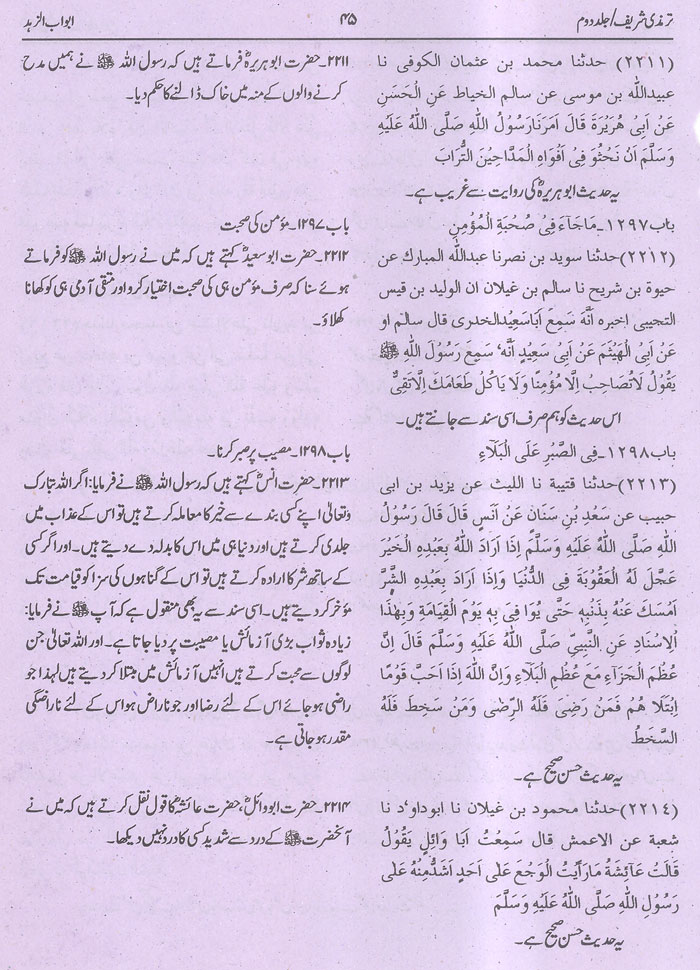 ترمذی شریف/جلد دوم ۴۵ ابواب الزہد
(۲۲۱۱) حدثنا محمد بن عثمان الکوفی نا
عبیدالله بن موسی عن سالم الخیاط عَنِ الْحَسَنِ
عَنْ اَبِیْ هُرَیْرَةَ قَالَ اَمَرَنَارَسُوْلُ اللهِ صَلَّی اللهُ عَلَیْهِ
وَسَلَّمَ اَنْ نَحْثُوَ فِیْ اَفْوَاهِ الْمَدَّاحِیْنَ التُّرَابَ
یہ حدیث ابوہریرہؓ کی روایت سے غریب ہے۔
باب۱۲۹۷۔مَاجَآءَ فِیْ صُحْبَةِ الْمُؤْمِنِ
(۲۲۱۲)حدثنا سوید بن نصرنا عبدالله المبارك عن
حیوة بن شریح نا سالم بن غیلان ان الولید بن قیس
التجیبی اخبره اَنَّهٗ سَمِعَ اَبَاسَعِیْدِالخدری قال سالم او
عَنْ اَبِی الْهَیْثَمِ عَنْ اَبِیْ سَعِیْدٍ اَنَّهٗ سَمِعَ رَسُوْلَ اللهِ ﷺ
یَقُوْلُ لَاتُصَاحِبْ اِلَّا مُؤْمِنًا وَلَا یَاْکُلْ طَعَامَكَ اِلَّاتَقِیٌّ
اس حدیث کو ہم صرف اسی سند سے جانتے ہیں۔
باب۱۲۹۸۔فِی الصَّبْرِ عَلَی الْبَلَآءِ
(۲۲۱۳)حدثنا قتیبة نا اللیث عن یزید بن ابی
حبیب عن سَعْدِ بْنِ سَنَانٍ عَنْ اَنَسٍ قَالَ قَالَ رَسُوْلُ
اللهِ صَلَّی اللهُ عَلَیْهِ وَسَلَّمَ اِذَا اَرَادَ اللهُ بِعَبْدِهِ الْخَیْرَ
عَجَّلَ لَهُ الْعُقُوْبَةَ فِی الدُّنْیَا وَاِذَا اَرَادَ بِعَبْدِهِ الشَّرَّ
اَمْسَكَ عَنْهُ بِذَنْبِهٖ حَتّٰی یُوَا فِیَ بِهٖ یَوْمَ الْقِیَامَةِ وَبِهٰذَا
الْاِسْنَادِ عَنِ النَّبِیِّ صَلَّی اللهُ عَلَیْهِ وَسَلَّمَ قَالَ اِنَّ
عُظْمَ الْجَزَآءِ مَعَ عُظْمِ الْبَلَآءِ وَاِنَّ اللهَ اِذَا اَحَبَّ قَوْمًا
اِبْتَلَا هُمْ فَمَنْ رَضِیَ فَلَهُ الرِّضٰی وَمَنْ سَخِطَ فَلَهُ
السَّخَطُ
یہ حدیث حسن صحیح ہے۔
(۲۲۱٤)حدثنا محمود بن غیلان نا ابوداوٗد نا
شعبة عن الاعمش قال سَمِعْتُ اَبَا وَائِلٍ یَقُوْلُ
قَالَتْ عَآئِشَةُ مَارَاَیْتُ الْوَجَعَ عَلٰی اَحَدٍ اَشَدَّمِنْهُ عَلٰی
رَسُوْلِ اللهِ صَلَّی اللهُ عَلَیْهِ وَسَلَّمَ
یہ حدیث حسن صحیح ہے۔
۲۲۱۱۔حضرت ابوہریرہؓ فرماتے ہیں کہ رسول اللہ ﷺ نے ہمیں مدح
کرنے والوں کے منہ میں خاک ڈالنے کا حکم دیا۔
باب ۱۲۹۷۔مؤمن کی صحبت
۲۲۱۲۔حضرت ابوسعیدؓ کہتے ہیں کہ میں نے رسول اللہ ﷺ کو فرماتے
ہوئے سنا کہ صرف مؤمن ہی کی صحبت اختیار کرو اور متقی آدمی ہی کو کھانا
کھلاؤ۔
باب ۱۲۹۸۔مصیبت پر صبر کرنا۔
۲۲۱۳۔حضرت انسؓ کہتے ہیں کہ رسول اللہ ﷺ نے فرمایا:اگر اللہ تبارک
وتعالیٰ اپنے کسی بندے سے خیر کا معاملہ کرتے ہیں تو اس کے عذاب میں
جلدی کرتے ہیں اور دنیا ہی میں اس کا بدلہ دے دیتے ہیں۔اور اگر کسی
کے ساتھ شر کا ارادہ کرتے ہیں تو اس کے گناہوں کی سزا کو قیامت تک
مؤخر کردیتے ہیں۔اسی سند سے یہ بھی منقول ہے کہ آپ ﷺ نے فرمایا:
زیادہ ثواب بڑی آزمائش یا مصیبت پر دیا جاتا ہے۔اور اللہ تعالیٰ جن
لوگوں سے محبت کرتے ہیں انہیں آزمائش میں مبتلا کردیتے ہیں لہٰذا جو
راضی ہوجائے اس کے لئے رضا اور جو ناراض ہو اس کے لئے ناراضگی
مقدر ہوجاتی ہے۔
۲۲۱۴۔حضرت ابووائلؓ،حضرت عائشہؓ کا قول نقل کرتے ہیں کہ میں نے
آنحضرت ﷺ کے درد سے شدید کسی کا درد نہیں دیکھا۔